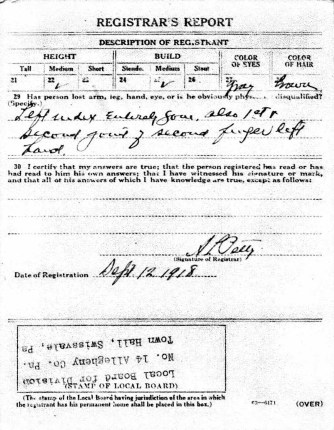 REGISTRAR'S REPORT
DESCRIPTION OF REGISTRANT
HEIGHT BUILD COLOR OF EYES COLOR OF HAIR
Tall Medium Short Slender Medium Stout
21 22 23 24 25 26 27 Gray 28 Brown
29 Has person lost arm, leg, hand, eye, or is he obviously disqualified?
(Specify.)
Left index Entirely gone, also 1st &
second joint of second finger left
hand.
30 I certify that my answers are true; that the person registered has read or has
had read to him his own answers; that I have witnessed his signature or mark,
and that all of his answers of which I have knowledge are true, except as follows:
(Signature of Registrar)
Date of Registration Sept. 12 1918
Local Board for Division
No. 14 Allegheny Co. Pa.
Town Hall, Swissvale, Pa
(STAMP OF LOCAL BOARD)
(The stamp of the Local Board having jurisdiction of the area in which
the registrant has his permanent home shall be placed in this box.)
(OVER)